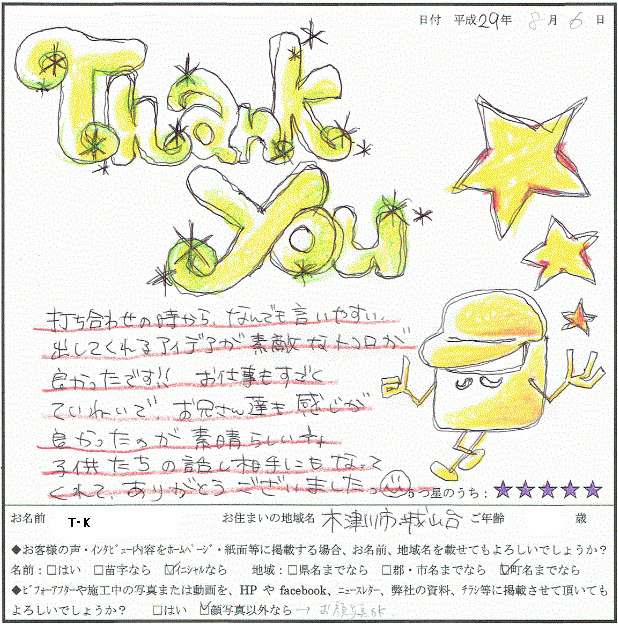 日付 平成29年 8月 6日
Thank
You
打ち合わせの時から、なんでも言いやすい、
出してくれるアイデアが素敵なトコロが
良かったです!! お仕事もすごく
ていねいで、お兄さん達も感じが
良かったのが素晴らしいですね
子供たちの話し相手にもなって
くれて、ありがとうございました。
5つ星のうち：★★★★★
お名前 T・K お住まいの地域名 木津川市城山台 ご年齢 歳
◆お客様の声・インタビュー内容をホームページ・紙面等に掲載する場合、お名前、地域名を載せてもよろしいでしょうか？
名前：□はい □苗字なら ☑イニシャルなら 地域：□県名までなら □郡・市名までなら ☑町名までなら
◆ビフォーアフターや施工中の写真または動画を、HP や facebook、ニュースレター、弊社の資料、チラシ等に掲載させて頂いても
よろしいでしょうか？ □はい ☑顔写真以外なら → お顔写真